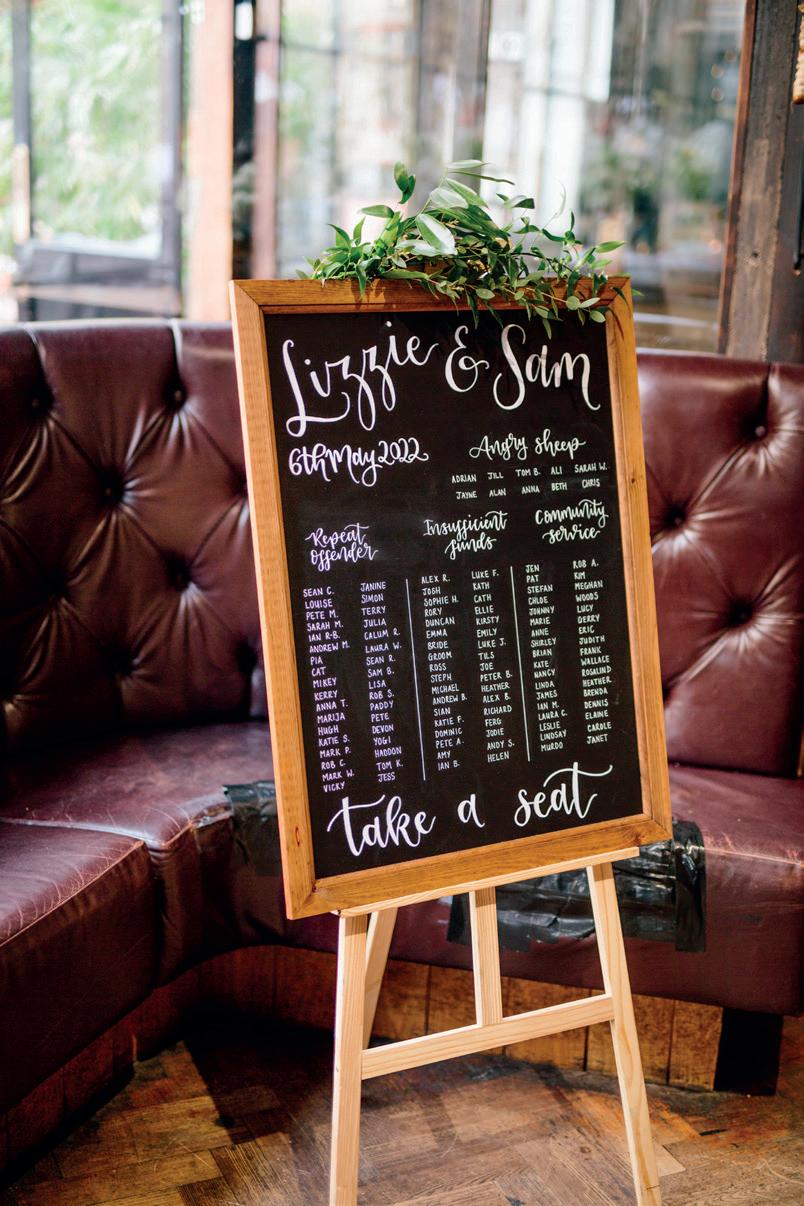 Lizzie & Sam
6th May 2022
Angry sheep
ADRIAN JILL TOM B. ALI SARAH W.
JAYNE ALAN ANNA BETH CHRIS
Repeat
offender
SEAN C.
LOUISE
PETE M.
SARAH M.
IAN R-B.
ANDREW M.
PIA
CAT
MIKEY
KERRY
ANNA T.
MARIJA
HUGH
KATIE S.
MARK P.
ROB C.
MARK W.
VICKY
JANINE
SIMON
TERRY
JULIA
CALUM R.
LAURA W.
SEAN R.
SAM B.
LISA
ROB S.
PADDY
PETE
DEVON
YOGI
HADDON
TOM K.
JESS
Insufficient
funds
ALEX R.
JOSH
SOPHIE H.
RORY
DUNCAN
EMMA
BRIDE
GROOM
ROSS
STEPH
MICHAEL
ANDREW B.
SIAN
KATIE F.
DOMINIC
PETE A.
AMY
IAN B.
LUKE F.
KATH
CATH
ELLIE
KIRSTY
EMILY
LUKE J.
TILS
JOE
PETER B.
HEATHER
ALEX B.
RICHARD
FERG
JODIE
ANDY S.
HELEN
Community
service
JEN
PAT
STEFAN
CHLOE
JOHNNY
MARIE
ANNE
SHIRLEY
BRIAN
KATE
NANCY
LINDA
JAMES
IAN M.
LAURA C.
LESLIE
LINDSAY
MURDO
ROB A.
KIM
MEGHAN
WOODS
LUCY
GERRY
ERIC
JUDITH
FRANK
WALLACE
ROSALIND
HEATHER
BRENDA
DENNIS
ELAINE
CAROLE
JANET
take a seat